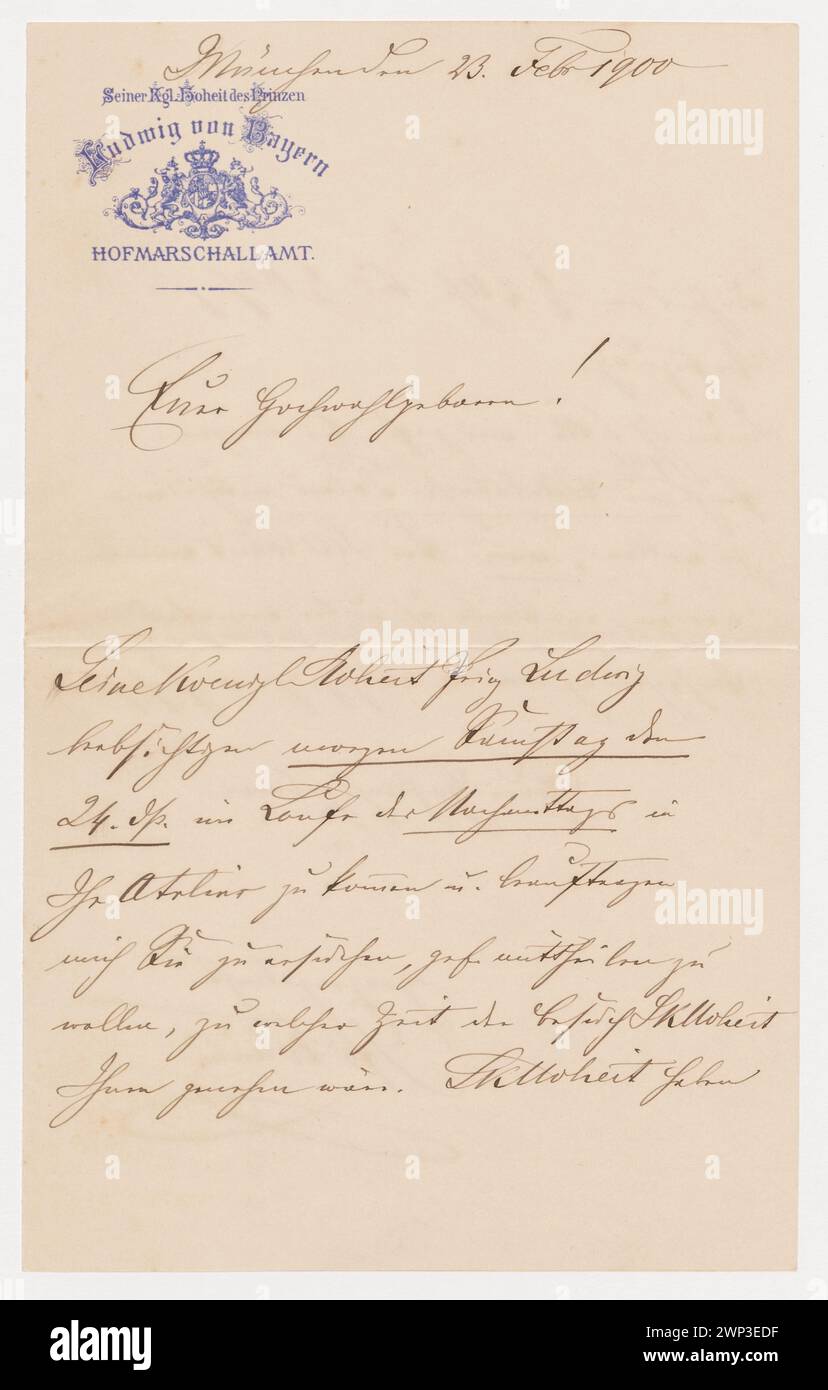 München den 23. Febr 1900
Seiner Kgl. Hoheit des Prinzen
Ludwig von Bayern
HOFMARSCHALLAMT.
Euer Hochwohlgeboren!
Seine Koenigl Hoheit Prinz Ludwig
beabsichtigen morgen Samstag den
24. ds. im Laufe des Nachmittags in
Ihr Atelier zu kommen u. beauftragen
mich Sie zu ersuchen, gef. mittheilen zu
wollen, zu welcher Zeit der Besuch SKHoheit
Ihnen genehm wäre. SKHoheit haben
alamy
alamy
alamy
alamy
alamy
Image ID: 2WP3EDF
www.alamy.com